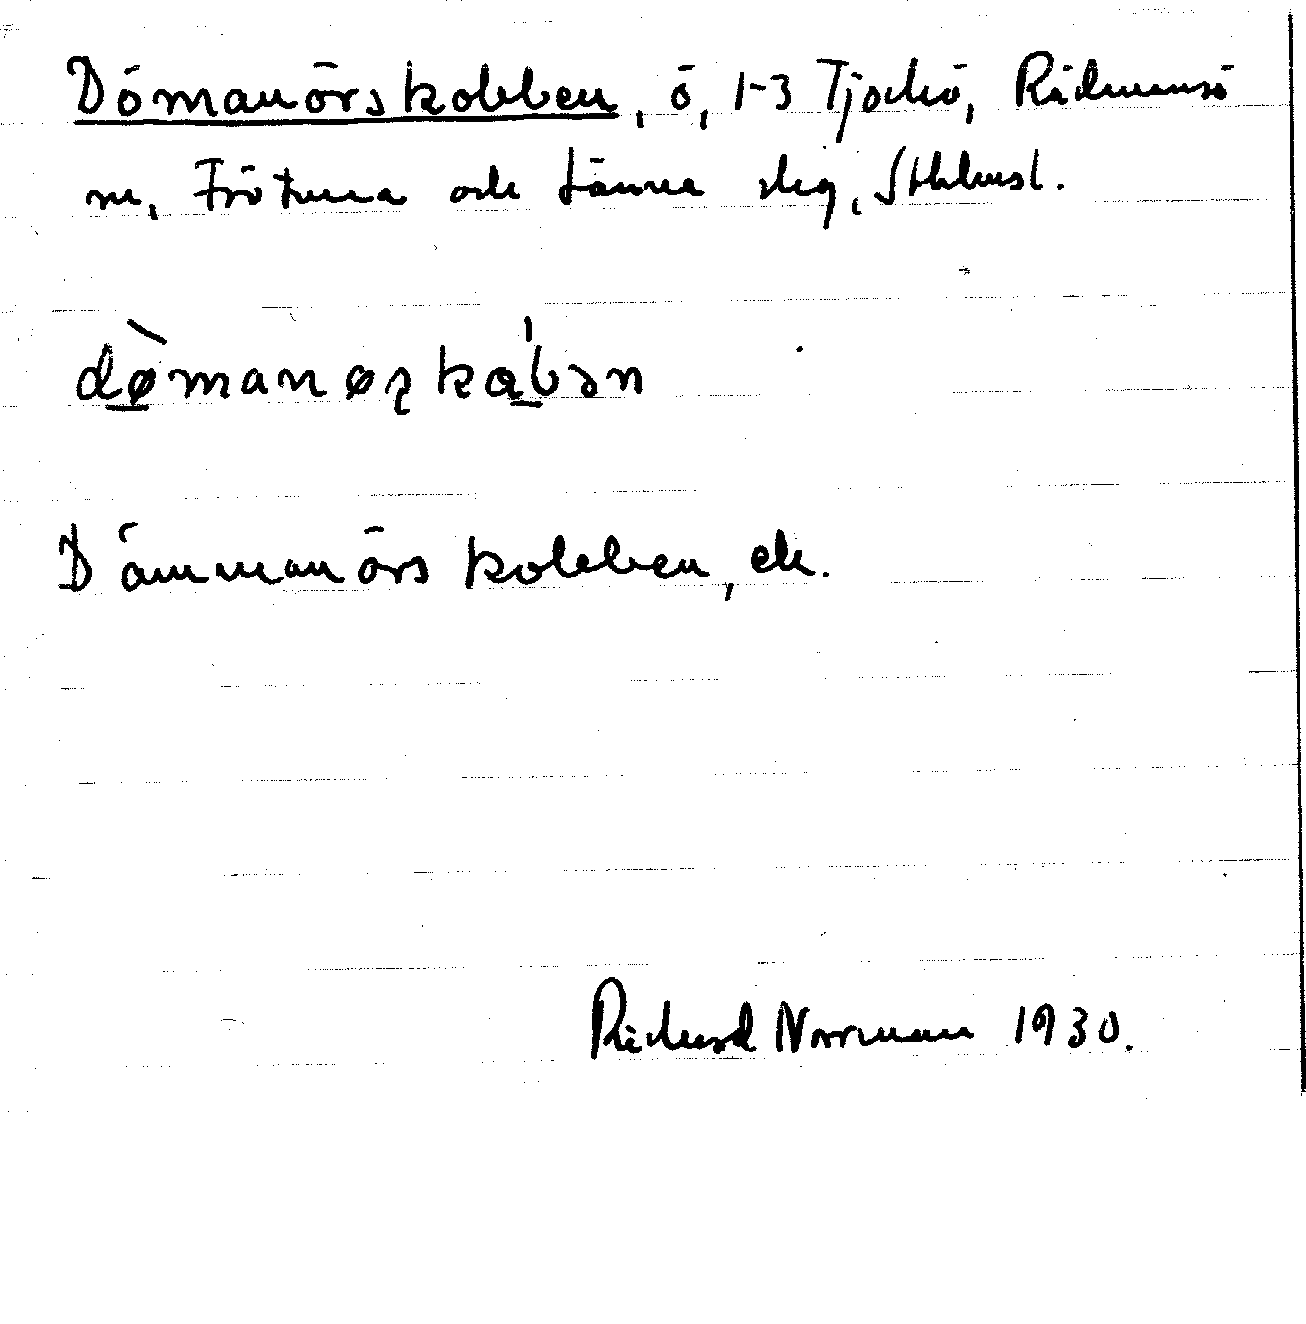 Dömanörskobben, ö, 1-3 Tjockö, Rådmansö
sn, Frötuna och Länna skg, Sthlmsl.
dø̀manøʂkɑ́bən
Dämmanörs kobben, ek.
Rickard Norrman 1930.